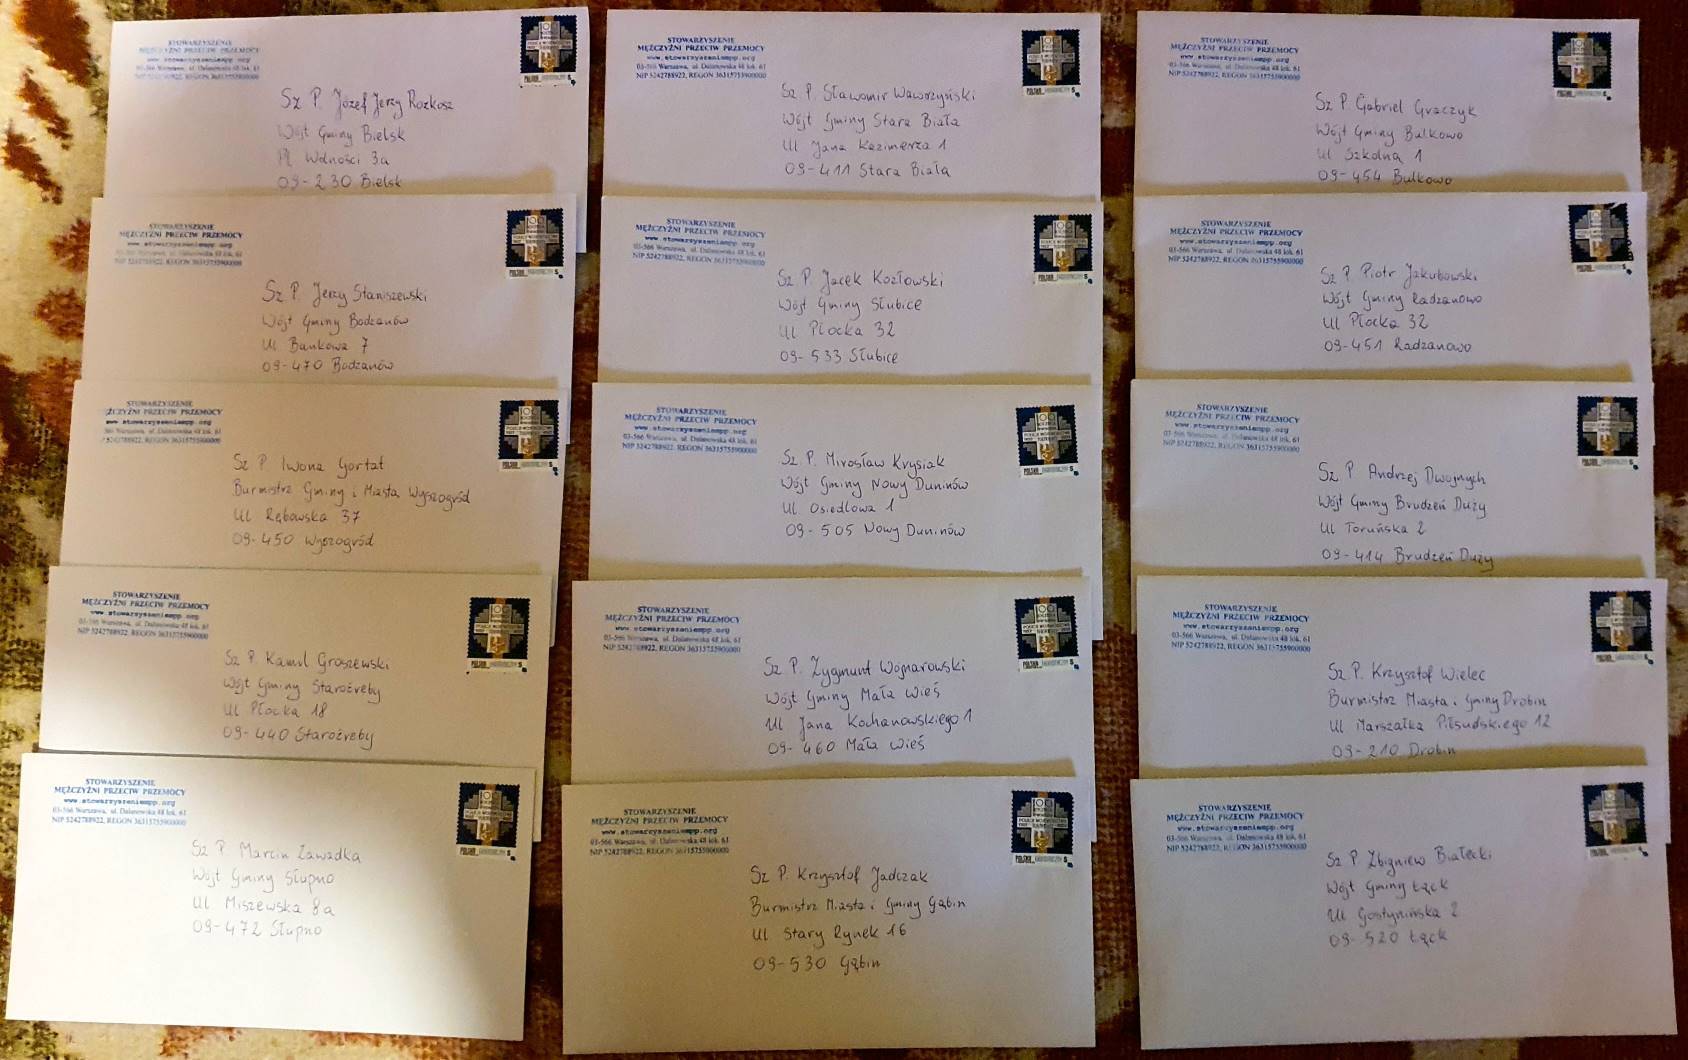 STOWARZYSZENIE
MĘŻCZYŹNI PRZECIW PRZEMOCY
www.stowarzyszeniempp.org
03-566 Warszawa, ul. Dalanowska 48 lok. 61
NIP 5242788922, REGON 36315755900000
Sz P. Józef Jerzy Rozkosz
Wójt Gminy Bielsk
Pl Wolności 3a
09-230 Bielsk
STOWARZYSZENIE
MĘŻCZYŹNI PRZECIW PRZEMOCY
www.stowarzyszeniempp.org
03-566 Warszawa, ul. Dalanowska 48 lok. 61
NIP 5242788922, REGON 36315755900000
Sz P. Jerzy Staniszewski
Wójt Gminy Bodzanów
Ul Bankowa 7
09-470 Bodzanów
STOWARZYSZENIE
MĘŻCZYŹNI PRZECIW PRZEMOCY
www.stowarzyszeniempp.org
03-566 Warszawa, ul. Dalanowska 48 lok. 61
NIP 5242788922, REGON 36315755900000
Sz P. Iwona Gortat
Burmistrz Gminy i Miasta Wyszogród
Ul Rębowska 37
09-450 Wyszogród
STOWARZYSZENIE
MĘŻCZYŹNI PRZECIW PRZEMOCY
www.stowarzyszeniempp.org
03-566 Warszawa, ul. Dalanowska 48 lok. 61
NIP 5242788922, REGON 36315755900000
Sz P. Kamil Groszewski
Wójt Gminy Staroźreby
Ul Płocka 18
09-440 Staroźreby
STOWARZYSZENIE
MĘŻCZYŹNI PRZECIW PRZEMOCY
www.stowarzyszeniempp.org
03-566 Warszawa, ul. Dalanowska 48 lok. 61
NIP 5242788922, REGON 36315755900000
Sz P. Marcin Zawadka
Wójt Gminy Słupno
Ul Miszewska 8a
09-472 Słupno
STOWARZYSZENIE
MĘŻCZYŹNI PRZECIW PRZEMOCY
www.stowarzyszeniempp.org
03-566 Warszawa, ul. Dalanowska 48 lok. 61
NIP 5242788922, REGON 36315755900000
Sz P. Sławomir Wawrzyński
Wójt Gminy Stara Biała
Ul Jana Kazimierza 1
09-411 Stara Biała
STOWARZYSZENIE
MĘŻCZYŹNI PRZECIW PRZEMOCY
www.stowarzyszeniempp.org
03-566 Warszawa, ul. Dalanowska 48 lok. 61
NIP 5242788922, REGON 36315755900000
Sz P. Jacek Kozłowski
Wójt Gminy Słubice
Ul Płocka 32
09-533 Słubice
STOWARZYSZENIE
MĘŻCZYŹNI PRZECIW PRZEMOCY
www.stowarzyszeniempp.org
03-566 Warszawa, ul. Dalanowska 48 lok. 61
NIP 5242788922, REGON 36315755900000
Sz P. Mirosław Krysiak
Wójt Gminy Nowy Duninów
Ul Osiedlowa 1
09-505 Nowy Duninów
STOWARZYSZENIE
MĘŻCZYŹNI PRZECIW PRZEMOCY
www.stowarzyszeniempp.org
03-566 Warszawa, ul. Dalanowska 48 lok. 61
NIP 5242788922, REGON 36315755900000
Sz P. Zygmunt Wojnarowski
Wójt Gminy Mała Wieś
Ul Jana Kochanowskiego 1
09-460 Mała Wieś
STOWARZYSZENIE
MĘŻCZYŹNI PRZECIW PRZEMOCY
www.stowarzyszeniempp.org
03-566 Warszawa, ul. Dalanowska 48 lok. 61
NIP 5242788922, REGON 36315755900000
Sz P. Krzysztof Jadczak
Burmistrz Miasta i Gminy Gąbin
Ul Stary Rynek 16
09-530 Gąbin
STOWARZYSZENIE
MĘŻCZYŹNI PRZECIW PRZEMOCY
www.stowarzyszeniempp.org
03-566 Warszawa, ul. Dalanowska 48 lok. 61
NIP 5242788922, REGON 36315755900000
Sz P. Gabriel Graczyk
Wójt Gminy Bulkowo
Ul Szkolna 1
09-454 Bulkowo
STOWARZYSZENIE
MĘŻCZYŹNI PRZECIW PRZEMOCY
www.stowarzyszeniempp.org
03-566 Warszawa, ul. Dalanowska 48 lok. 61
NIP 5242788922, REGON 36315755900000
Sz P. Piotr Jakubowski
Wójt Gminy Radzanowo
Ul Płocka 32
09-451 Radzanowo
STOWARZYSZENIE
MĘŻCZYŹNI PRZECIW PRZEMOCY
www.stowarzyszeniempp.org
03-566 Warszawa, ul. Dalanowska 48 lok. 61
NIP 5242788922, REGON 36315755900000
Sz P. Andrzej Dwojnych
Wójt Gminy Brudzeń Duży
Ul Toruńska 2
09-414 Brudzeń Duży
STOWARZYSZENIE
MĘŻCZYŹNI PRZECIW PRZEMOCY
www.stowarzyszeniempp.org
03-566 Warszawa, ul. Dalanowska 48 lok. 61
NIP 5242788922, REGON 36315755900000
Sz P. Krzysztof Wielec
Burmistrz Miasta i Gminy Drobin
Ul Marszałka Piłsudskiego 12
09-210 Drobin
STOWARZYSZENIE
MĘŻCZYŹNI PRZECIW PRZEMOCY
www.stowarzyszeniempp.org
03-566 Warszawa, ul. Dalanowska 48 lok. 61
NIP 5242788922, REGON 36315755900000
Sz P. Zbigniew Białecki
Wójt Gminy Łąck
Ul Gostynińska 2
09-520 Łąck